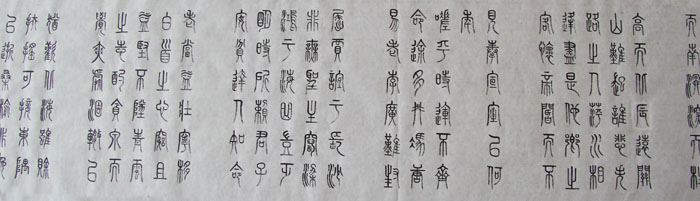 而南溟深天柱
高而北辰遠關
山難越誰悲失
路之人萍水相
逢盡是他鄉之
客懷帝閽而不
見奉宣室以何
年
嗟乎時運不齊
命途多舛馮唐
易老李廣難封
屈賈誼于長沙
非無聖主竄梁
鴻于海曲豈乏
明時所賴君子
安貧達人知命
老當益壯寧移
白首之心窮且
益堅不墜青雲
之志酌貪泉而
覺爽處涸轍以
猶歡北海雖賒
扶搖可接東隅
已逝桑榆非晚